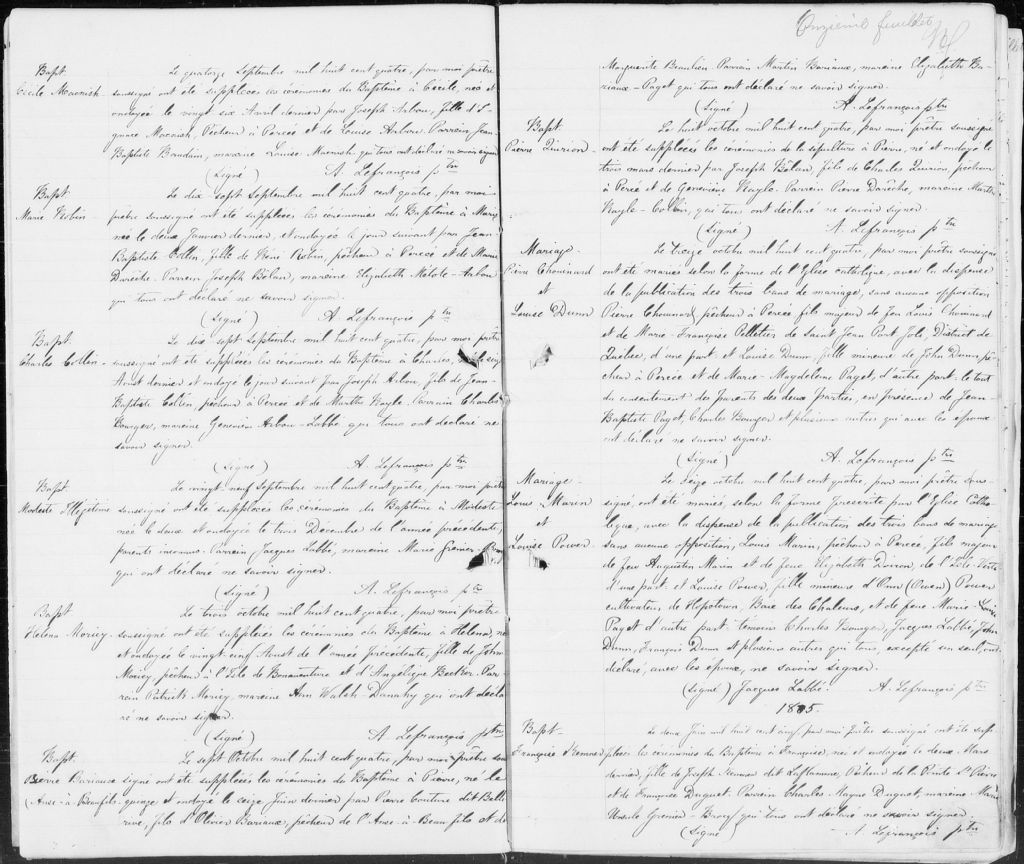 Bapt.
Cécile Macnish
Le quatorze Septembre mil huit cent quatre, par moi prêtre
soussigné ont été suppléées les cérémonies du Baptême à Cécile, née et
ondoyée le vingt six Avril dernier par Joseph Arbou, fille d'I-
gnace Macnish, Pêcheur à Percée et de Louise Arbou. Parrain Jean-
Baptiste Boudain, marraine Louise Macnish qui tous ont déclaré ne savoir signer
(Signé) A. Lefrançois ptre
Bapt.
Marie Robin
Le dix sept Septembre mil huit cent quatre, par moi
prêtre soussigné ont été suppléées les cérémonies du Baptême à Marie
née le deux Janvier dernier, et ondoyée le jour suivant par Jean
Baptiste Collin, fille de Réné Robin, pêcheur à Percée et de Marie
Duroche. Parrain Joseph Bélan, marraine Elizabeth Mélote-Arbou
qui tous ont déclaré ne savoir signer.
(Signé) A Lefrançois ptre
Bapt.
Charles Collin
Le dix sept Septembre mil huit cent quatre, par moi prêtre
soussigné ont été suppléées les cérémonies du Baptême à Charles, né le cinq
Aoust dernier et ondoyé le jour suivant par Joseph Arbou, fils de Jean-
Baptiste Collin, pêcheur à Percée et de Marthe Nayle. Parrain Charles
Bourger, marraine Geneviève Arbou-Labbé qui tous ont déclaré ne
savoir signer.
(Signé) A. Lefrançois ptre
Bapt.
Modeste Illégitime
Le vingt-neuf Septembre mil huit cent quatre, par moi prêtre
soussigné ont été suppléées les cérémonies du Baptême à Modeste
née le deux et ondoyée le trois Décembre de l'année précédente,
parents inconnus. Parrain Jacques Labbé, marraine Marie Grenier
qui ont déclaré ne savoir signer.
(Signé) A. Lefrançois ptre
Bapt
Helena Moricy
Le trois octobre mil huit cent quatre, par moi prêtre
soussigné ont été suppléées les cérémonies du Baptême à Helena, née
et ondoyée le vingt cinq Aoust de l'année précédente, fille de John
Moricy, pêcheur à l'Isle de Bonaventure et d'Angélique Becker. Par-
rain Patrick Moricy, marraine Ann Walsh-Danahy qui ont décla-
ré ne savoir signer.
(Signé) A Lefrançois ptre
Bapt.
Pierre Bariaux
(Anse-à-Beaufils
Le sept Octobre mil huit cent quatre, par moi prêtre sous
signé ont été suppléées les cérémonies du Baptême à Pierre, né le
quinze et ondoyé le seize Juin dernier par Pierre Couture dit Belle
rive, fils d'Olivier Bariaux, pêcheur de l'Anse-à-Beau fils et de
Onzième feuillet
Marguerite Beaulieu. Parrain Martin Bariaux, marraine Elizabeth Ba-
riaux-Paget qui tous ont déclaré ne savoir signer.
(Signé) A. Lefrançois ptre
Bapt.
Pierre Quirion
Le huit octobre mil huit cent quatre, par moi prêtre soussigné
ont été suppléées les cérémonies de la sépulture à Pierre, né et ondoyé le
trois mars dernier par Joseph Bélan, fils de Charles Quirion, pêcheur
à Percé et de Geneviève Nayle. Parrain Pierre Duroche, marraine Marthe
Nayle-Collin, qui tous ont déclaré ne savoir signer.
(Signé) A. Lefrançois ptre
Mariage
Pierre Chouinard
et
Louise Dunn
Le treize octobre mil huit cent quatre, par moi prêtre soussigné
ont été mariés selon la forme de l'Eglise catholique, avec la dispense
de la publication des trois bans de mariage, sans aucune opposition
Pierre Chouinard, pêcheur à Percée fils majeur de feu Louis Chouinard
et de Marie-Françoise Pelletier de Saint Jean Port Joli, District de
Québec, d'une part, et Louise Dunn, fille mineure de John Dunn, pê-
cheur à Percée et de Marie-Magdeleine Paget, d'autre part, le tout
du consentement des parents des deux parties, en présence de Jean-
Baptiste Paget, Charles Bourger et plusieurs autres qui avec les époux
ont déclaré ne savoir signer.
(Signé) A. Lefrançois ptre
Mariage
Louis Marin
et
Louise Power
Le seize octobre mil huit cent quatre, par moi prêtre sous-
signé, ont été mariés, selon la forme prescrite par l'Eglise Catho-
lique, avec la dispense de la publication des trois bans de mariage
sans aucune opposition, Louis Marin, pêcheur à Percée, fils majeur
de feu Augustin Marin et de feue Elizabeth Doiron, de l'Isle-Verte
d'une part et Louise Power, fille mineure d'Own (Owen) Power
cultivateur, de Hopetown, Baie des Chaleurs, et de feue Marie-Louise
Paget d'autre part. témoins Charles Bourger, Jacques Labbé, John
Dunn, François Dunn et plusieurs autres qui tous, excepté un seul, ont
déclaré, avec les époux, ne savoir signer.
(Signé) Jacques Labbé. A. Lefrançois ptre
1805.
Bapt.
Françoise
Le deux Juin mil huit cent cinq, par moi Prêtre soussigné ont été sup-
pléées les cérémonies du Baptême à Françoise, née et ondoyée le deux Mars
dernier, fille de Joseph dit Laflamme, Pêcheur de la Pointe St Pierre
et de Françoise Duguet. Parrain Charles Duguet, marraine Marie
Ursule Grenier-Brocy qui tous ont déclaré ne savoir signer.
(Signé) A Lefrançois ptre